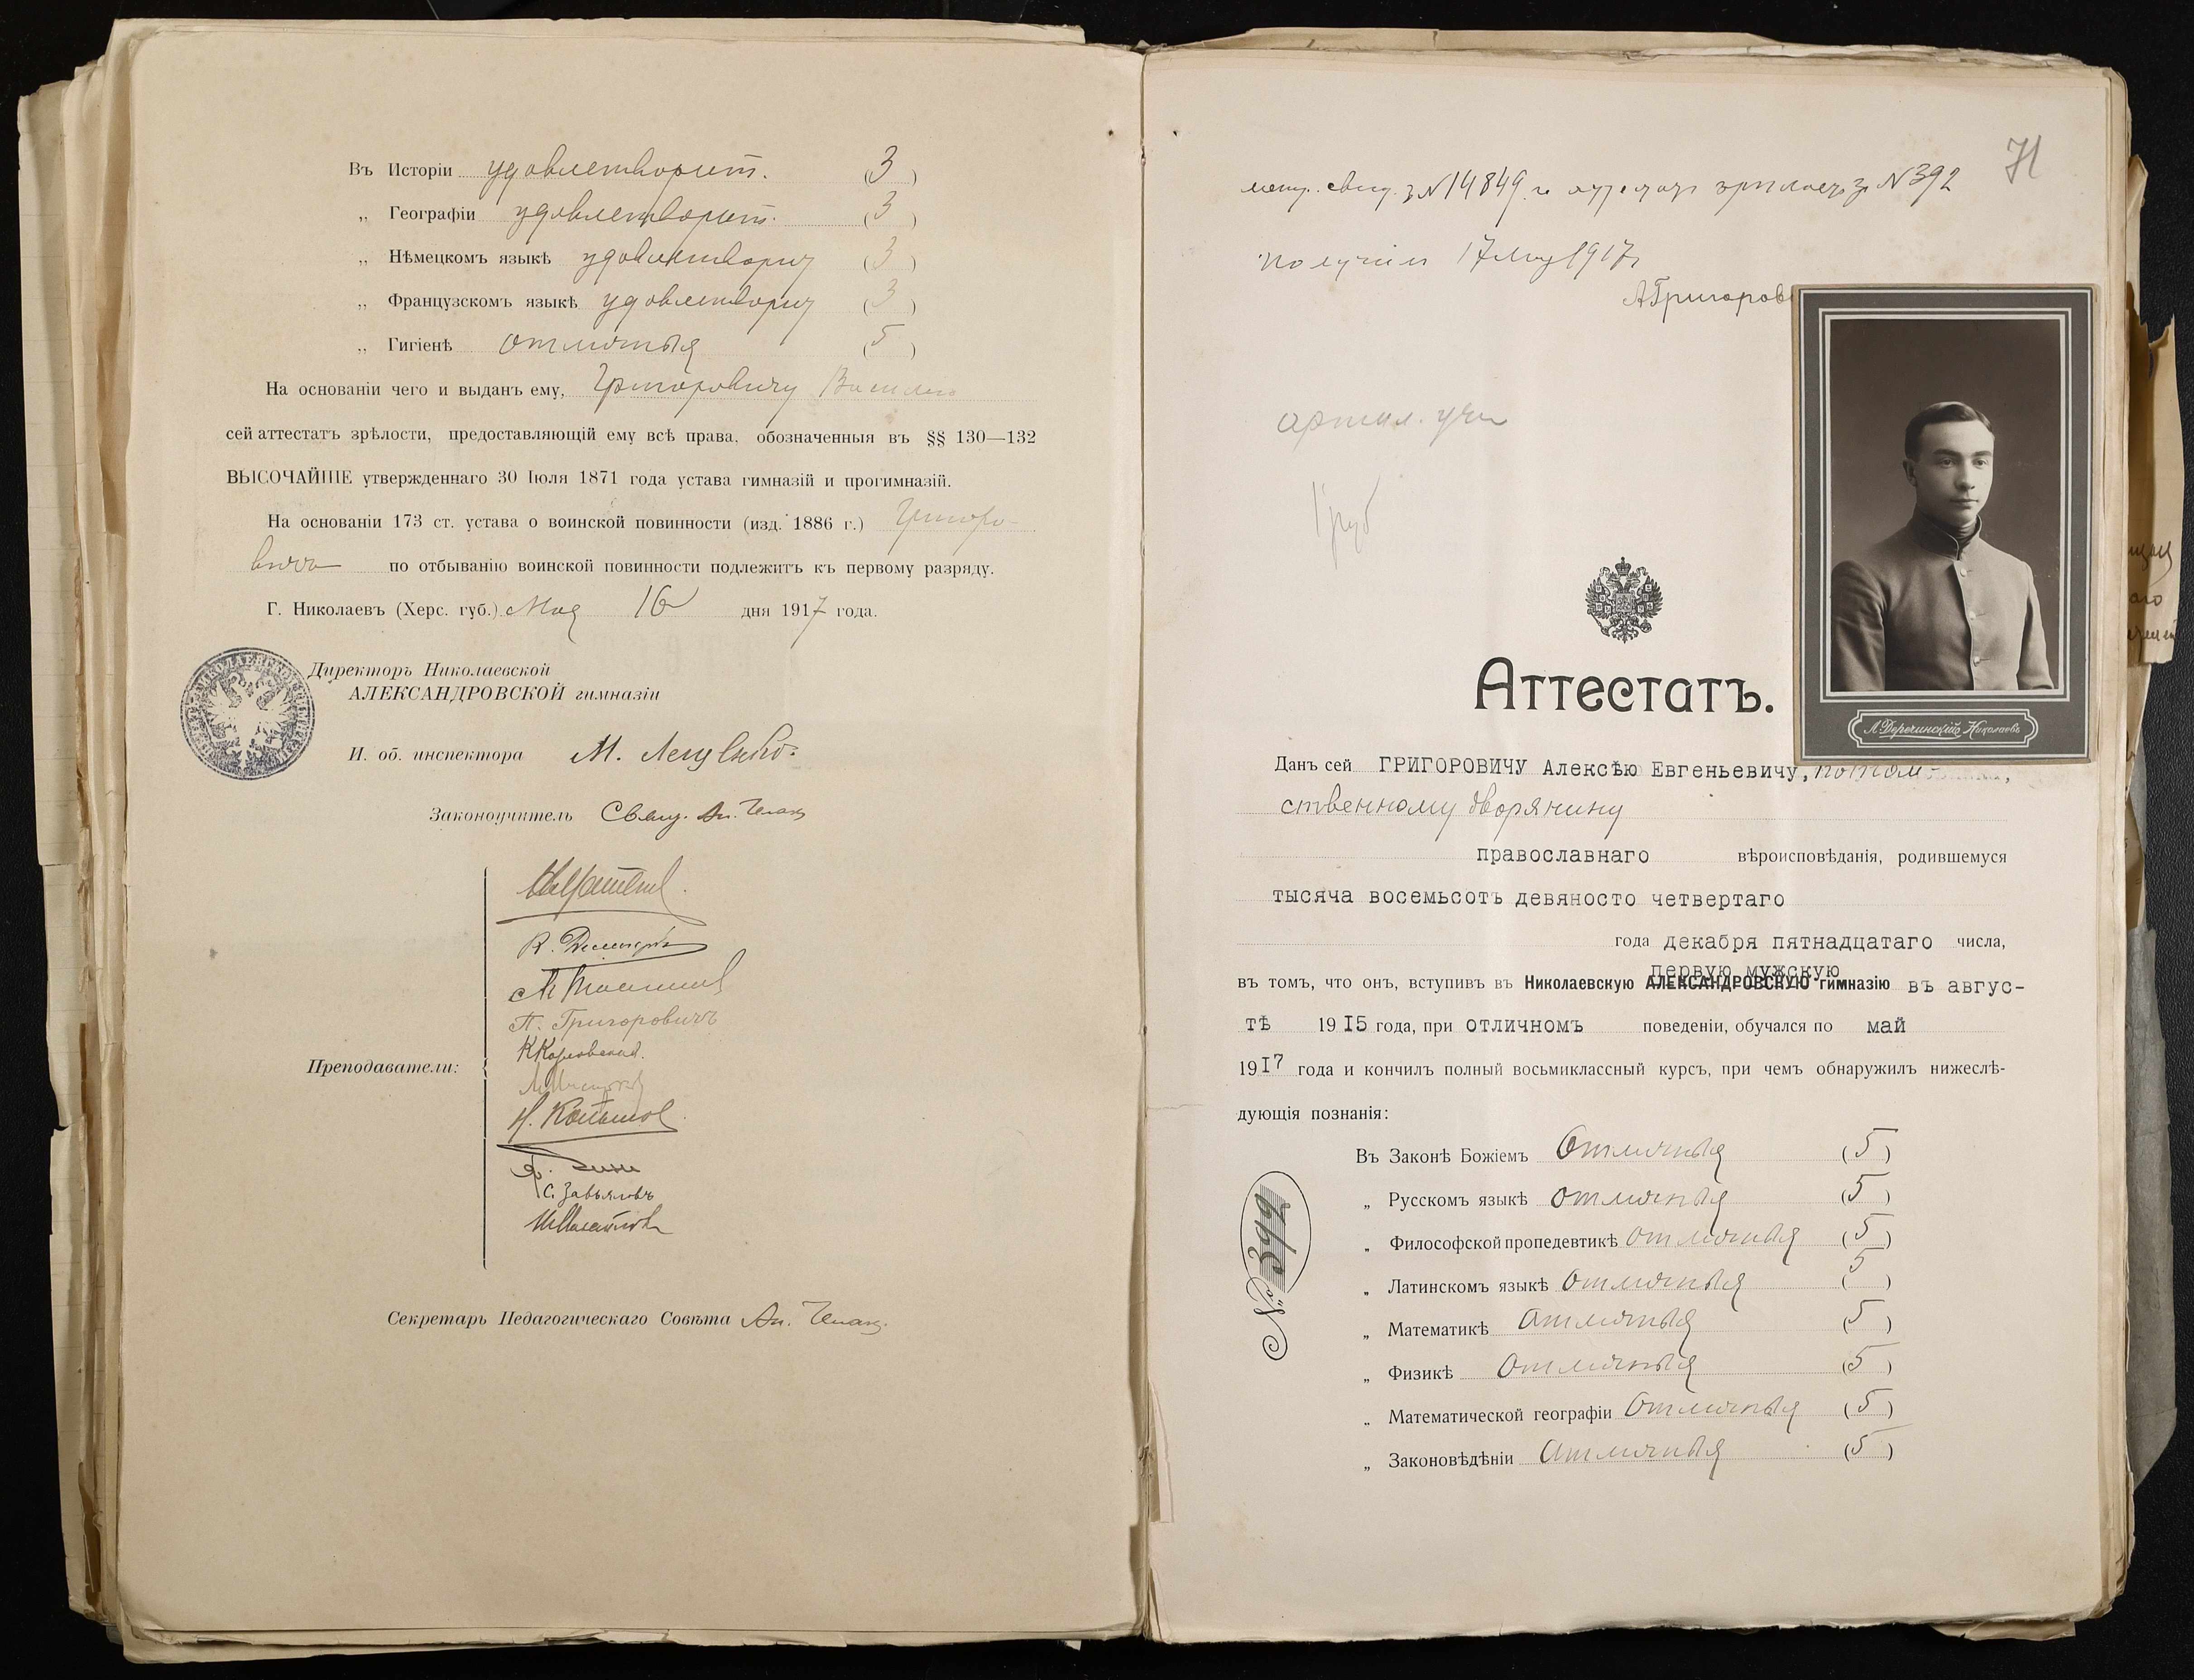 Въ Исторіи удовлетворит. (3)
„ Географіи удовлетворит. (3)
„ Нѣмецкомъ языкѣ удовлетворит (3)
„ Французскомъ языкѣ удовлетворит (3)
„ Гигіенѣ отличныя (5)
На основаніи чего и выданъ ему, Григоровичу
сей аттестатъ зрѣлости, предоставляющій ему всѣ права, обозначенныя въ §§ 130—132
ВЫСОЧАЙШЕ утвержденнаго 30 Іюля 1871 года устава гимназій и прогимназій.
На основаніи 173 ст. устава о воинской повинности (изд. 1886 г.) Григоро-
вичъ по отбыванію воинской повинности подлежитъ къ первому разряду.
Г. Николаевъ (Херс. губ.) Мая 16 дня 1917 года.
Директоръ Николаевской
АЛЕКСАНДРОВСКОЙ гимназіи
И. об. инспектора М.
Законоучитель Свящ. Ал.
Преподаватели:
П. Григоровичъ
С. Завьяловъ
Секретарь Педагогическаго Совѣта Ал.
71
свид. з N 14849 N 392
Получилъ 17 мая 1917 г
АГригоров
артил. уч
Аттестатъ.
Л. Деречинскій Николаевъ
Данъ сей ГРИГОРОВИЧУ Алексѣю Евгеньевичу, потом-
ственному дворянину
православнаго вѣроисповѣданія, родившемуся
тысяча восемьсотъ девяносто четвертаго
года декабря пятнадцатаго числа,
первую мужскую
въ томъ, что онъ, вступивъ въ Николаевскую АЛЕКСАНДРОВСКУЮ гимназію въ авгус-
тѣ 1915 года, при отличномъ поведеніи, обучался по май
1917 года и кончилъ полный восьмиклассный курсъ, при чемъ обнаружилъ нижеслѣ-
дующія познанія:
Въ Законѣ Божіемъ Отличныя (5)
„ Русскомъ языкѣ отличныя (5)
„ Философской пропедевтикѣ отличныя (5)
„ Латинскомъ языкѣ отличныя (5)
„ Математикѣ отличныя (5)
„ Физикѣ отличныя (5)
„ Математической географіи отличныя (5)
„ Законовѣдѣніи отличныя (5)
№ 399